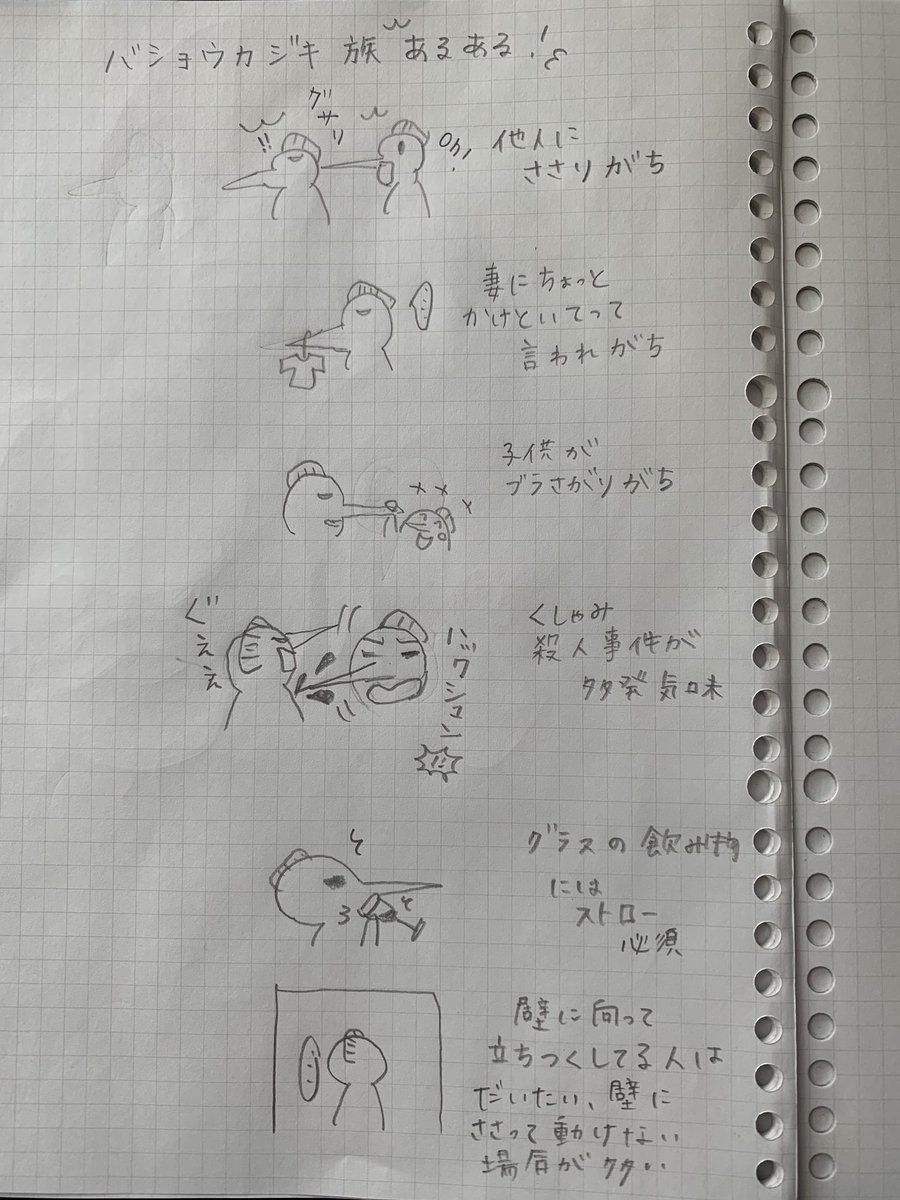 バショウカジキ族あるある!
グサリ
!!
他人に
ささりがち
妻にちょっと
かけといてって
言われがち
子供が
ブラさがりがち
ぐぇぇぇ
ハックション
!!
くしゃみ
殺人事件が
多発気味
グラスの飲み物
には
ストロー
必須
壁に向って
立ちつくしてる人は
だいたい、壁に
ささって動けない
場合が多い